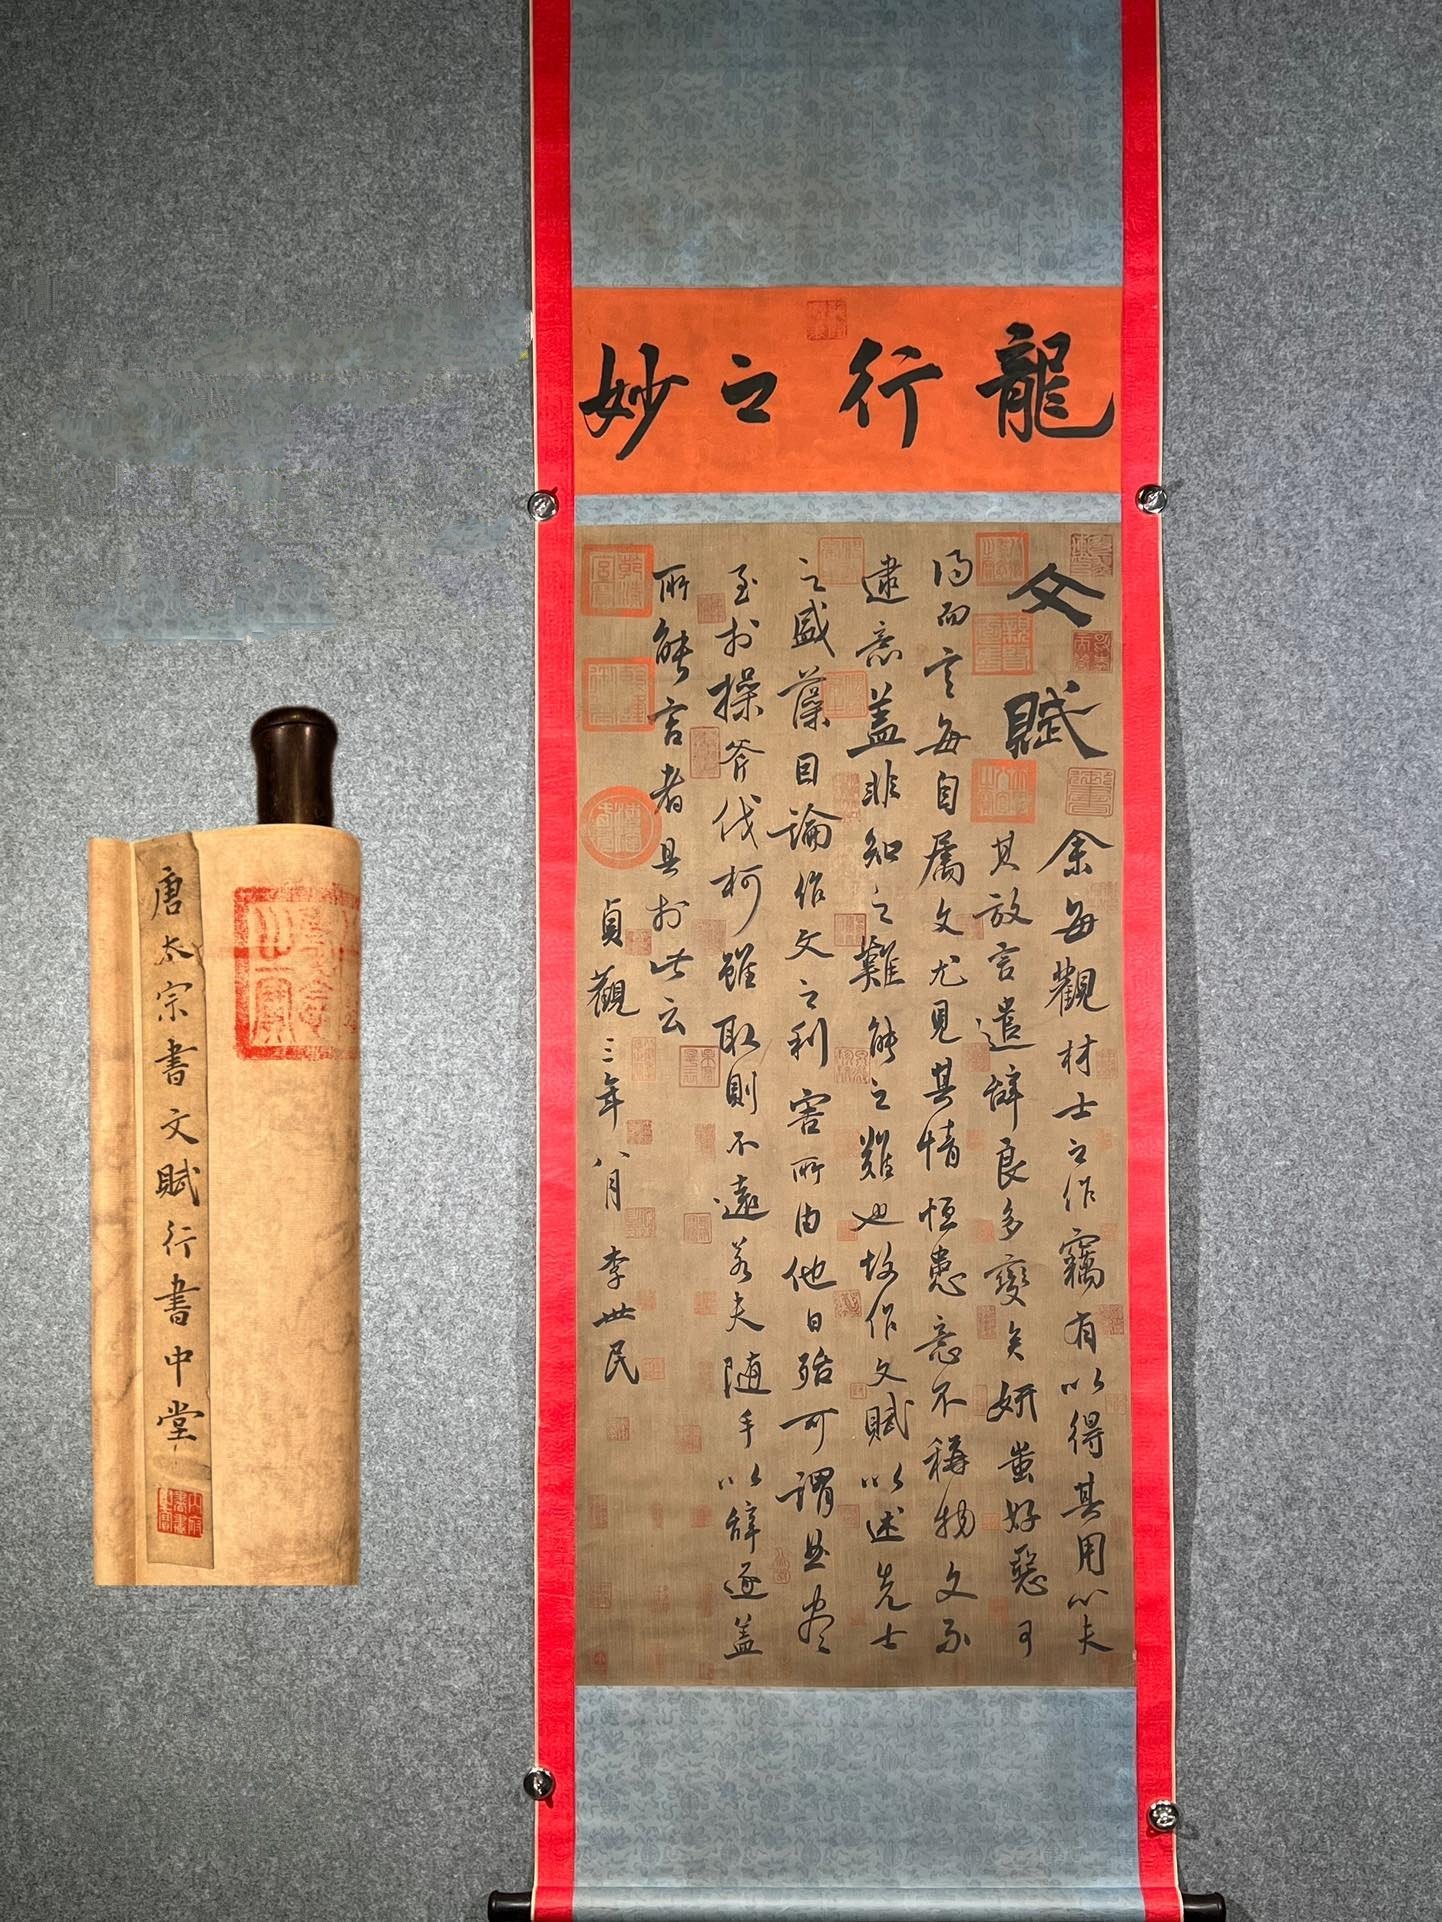 龍行之妙
文賦
余每觀材士之作竊有以得其用心夫
其放言遣辭良多變矣妍蚩好惡可
得而言每自属文尤見其情恒患意不稱物文不
逮意盖非知之難能之難也故作文賦以述先士
之盛藻因論作文之利害所由他日殆可謂曲尽
至於操斧伐柯雖取則不遠若夫随手以辞逐盖
所能言者具於此云
貞觀三年八月 李世民
唐太宗書文賦行書中堂